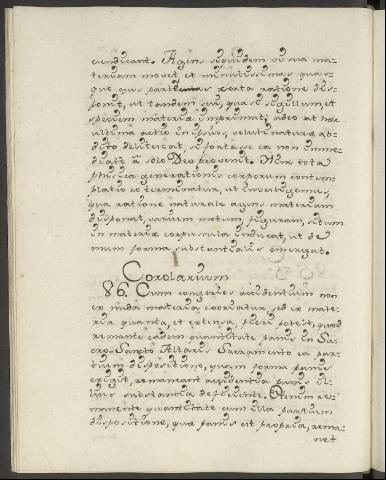 cendicant. Agens siquidem vi sua ma-
teriam movet et minutissimas quas-
que eius partes certa ratione dis-
ponit, ut tandem sui, quasi sigillum, et
speciem materiæ imprimat; adeo ut hæc
ultima actio ipsius, veluti naturæ ab-
dito delitescat, si fortasse ea non imme-
diate à solo Deo provenit. Hinc tota
phisica generationis corporum contem-
platio eo terminatur, ut investigemus,
qua ratione naturale agens materiam
disponat, varium motum, figuram, situm
in materiæ corpuscula inducat, ut de-
mum forma substantialis emergat.
Corolarium
86. Cum congeries accidentium non
ex nuda materia exoriatur, sed ex mate-
ria quanta, et extensa, fieri potest, quod
remanente eadem quantitate panis in Sa-
cro-Sancto Altaris Sacramento ea par-
tium dispositione, quam forma panis
exigit, remaneant accidentia panis il-
lius substantia deficiente. Etenim re-
manente quantitate cum illa partium
dispositione, quæ panis est propria, rema-
net